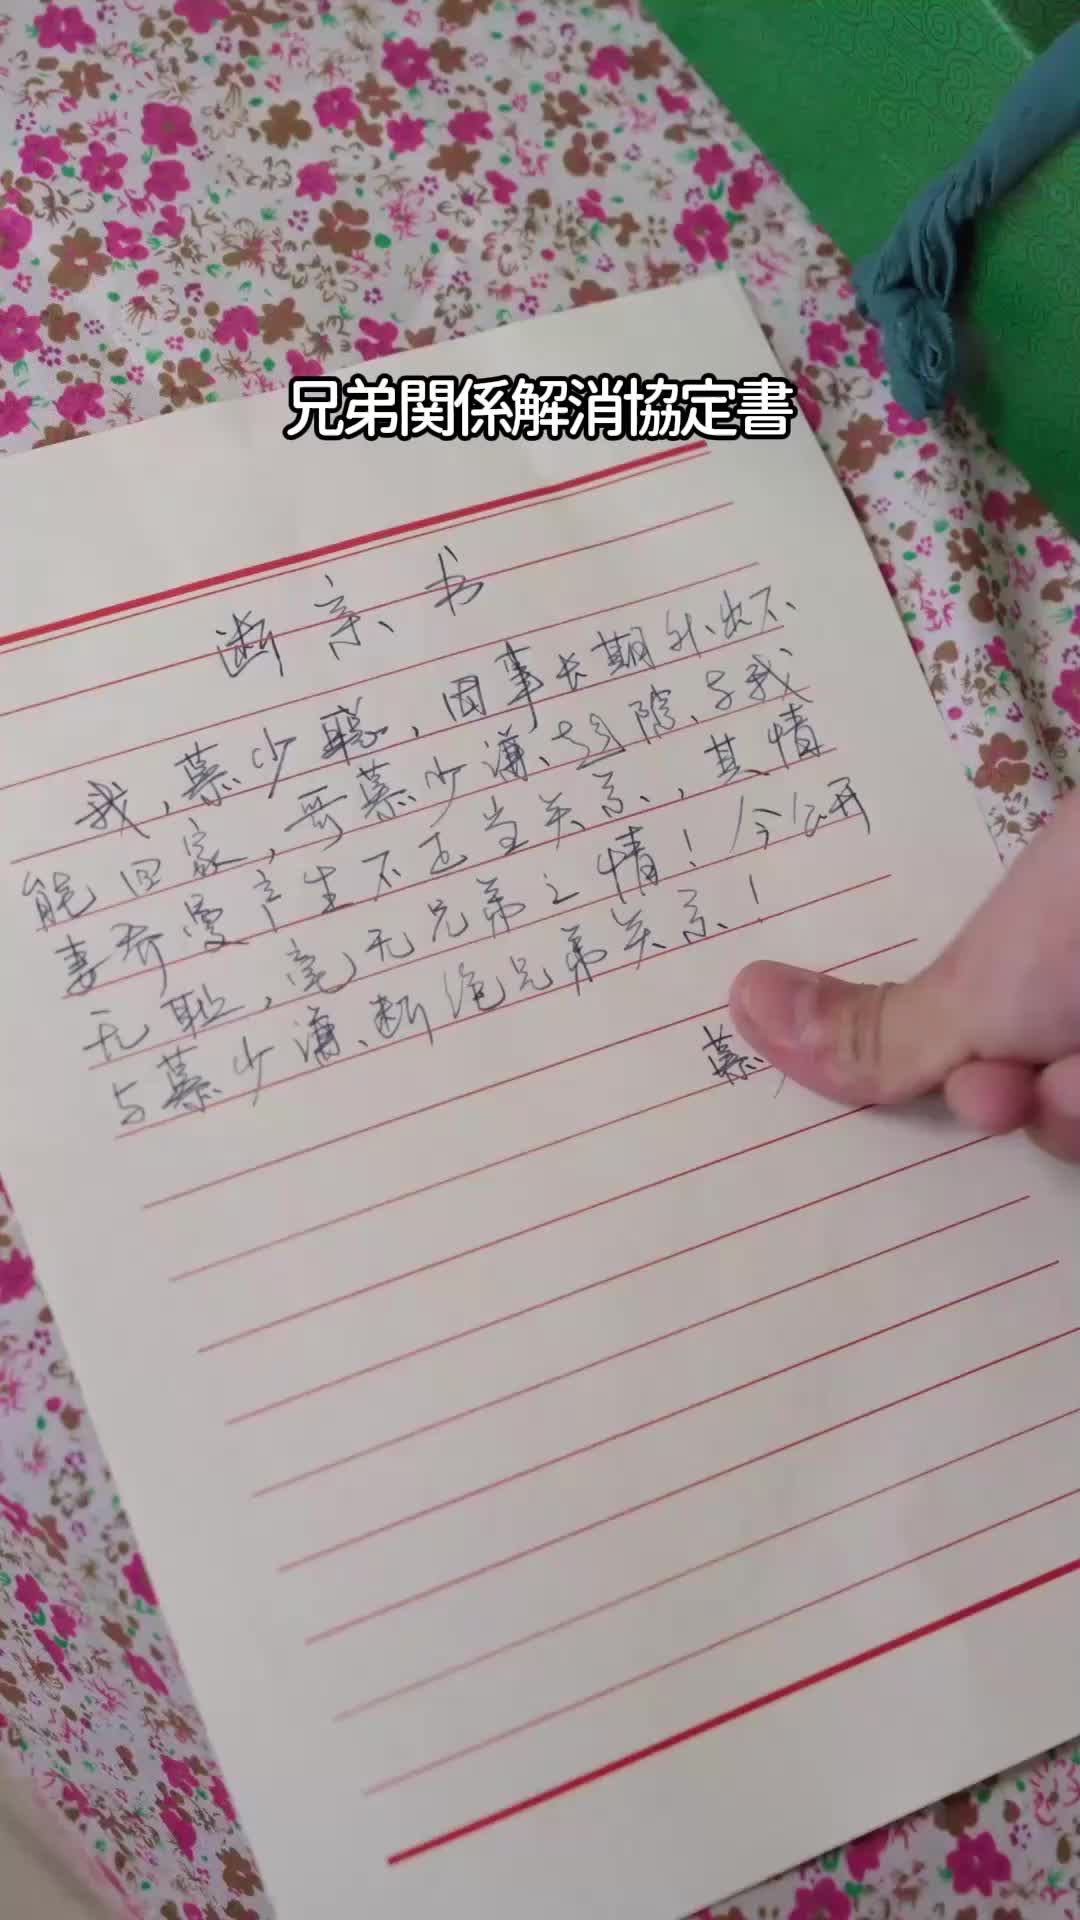 兄弟関係解消協定書
断亲书
我,慕少聪,因事长期外出不
能回家,哥慕少谦、趁隙、与我
妻乔曼产生不正当关系,其情
无耻,毫无兄弟之情!今公开
与慕少谦、断绝兄弟关系!
慕